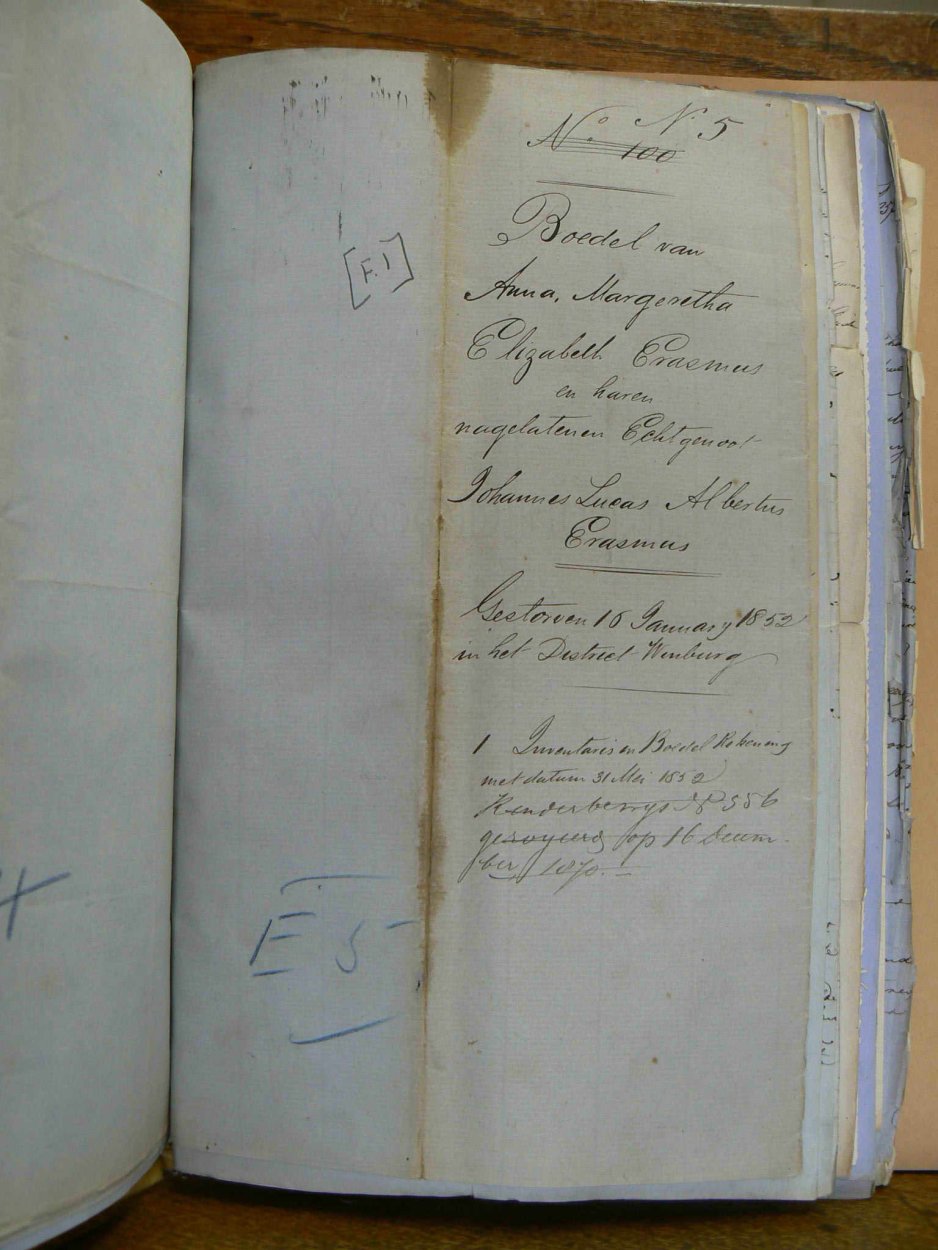 N. 5
No. 100
[F.1]
Boedel van
Anna, Margeretha
Elizabeth Erasmus
en haren
nagelatenen Echtgenoot
Johannes Lucas Albertus
Erasmus
Gestorven 16 January 1852
in het District Winburg
1 Inventaris en Boedel Rekening
met datum 31 Mei 1852
Kinderbewys No 556
geroyeerd op 16 Decem-
ber 1870.
E 5